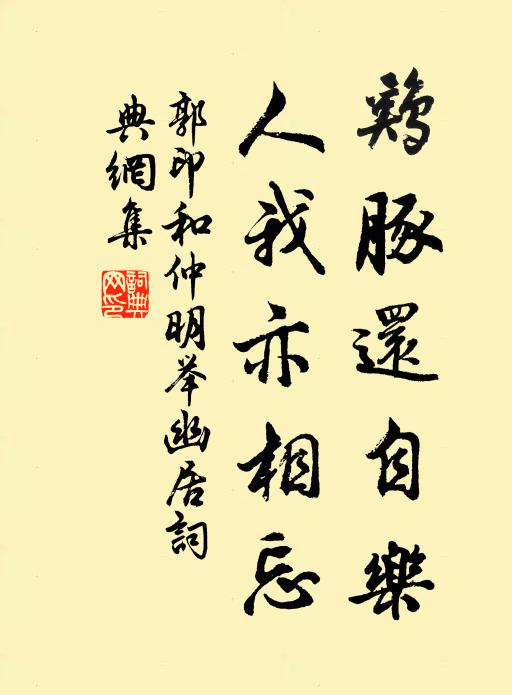 鷄豚還自樂
人我亦相忘
郭印和仲明举幽居詞
典網集
詞典网印